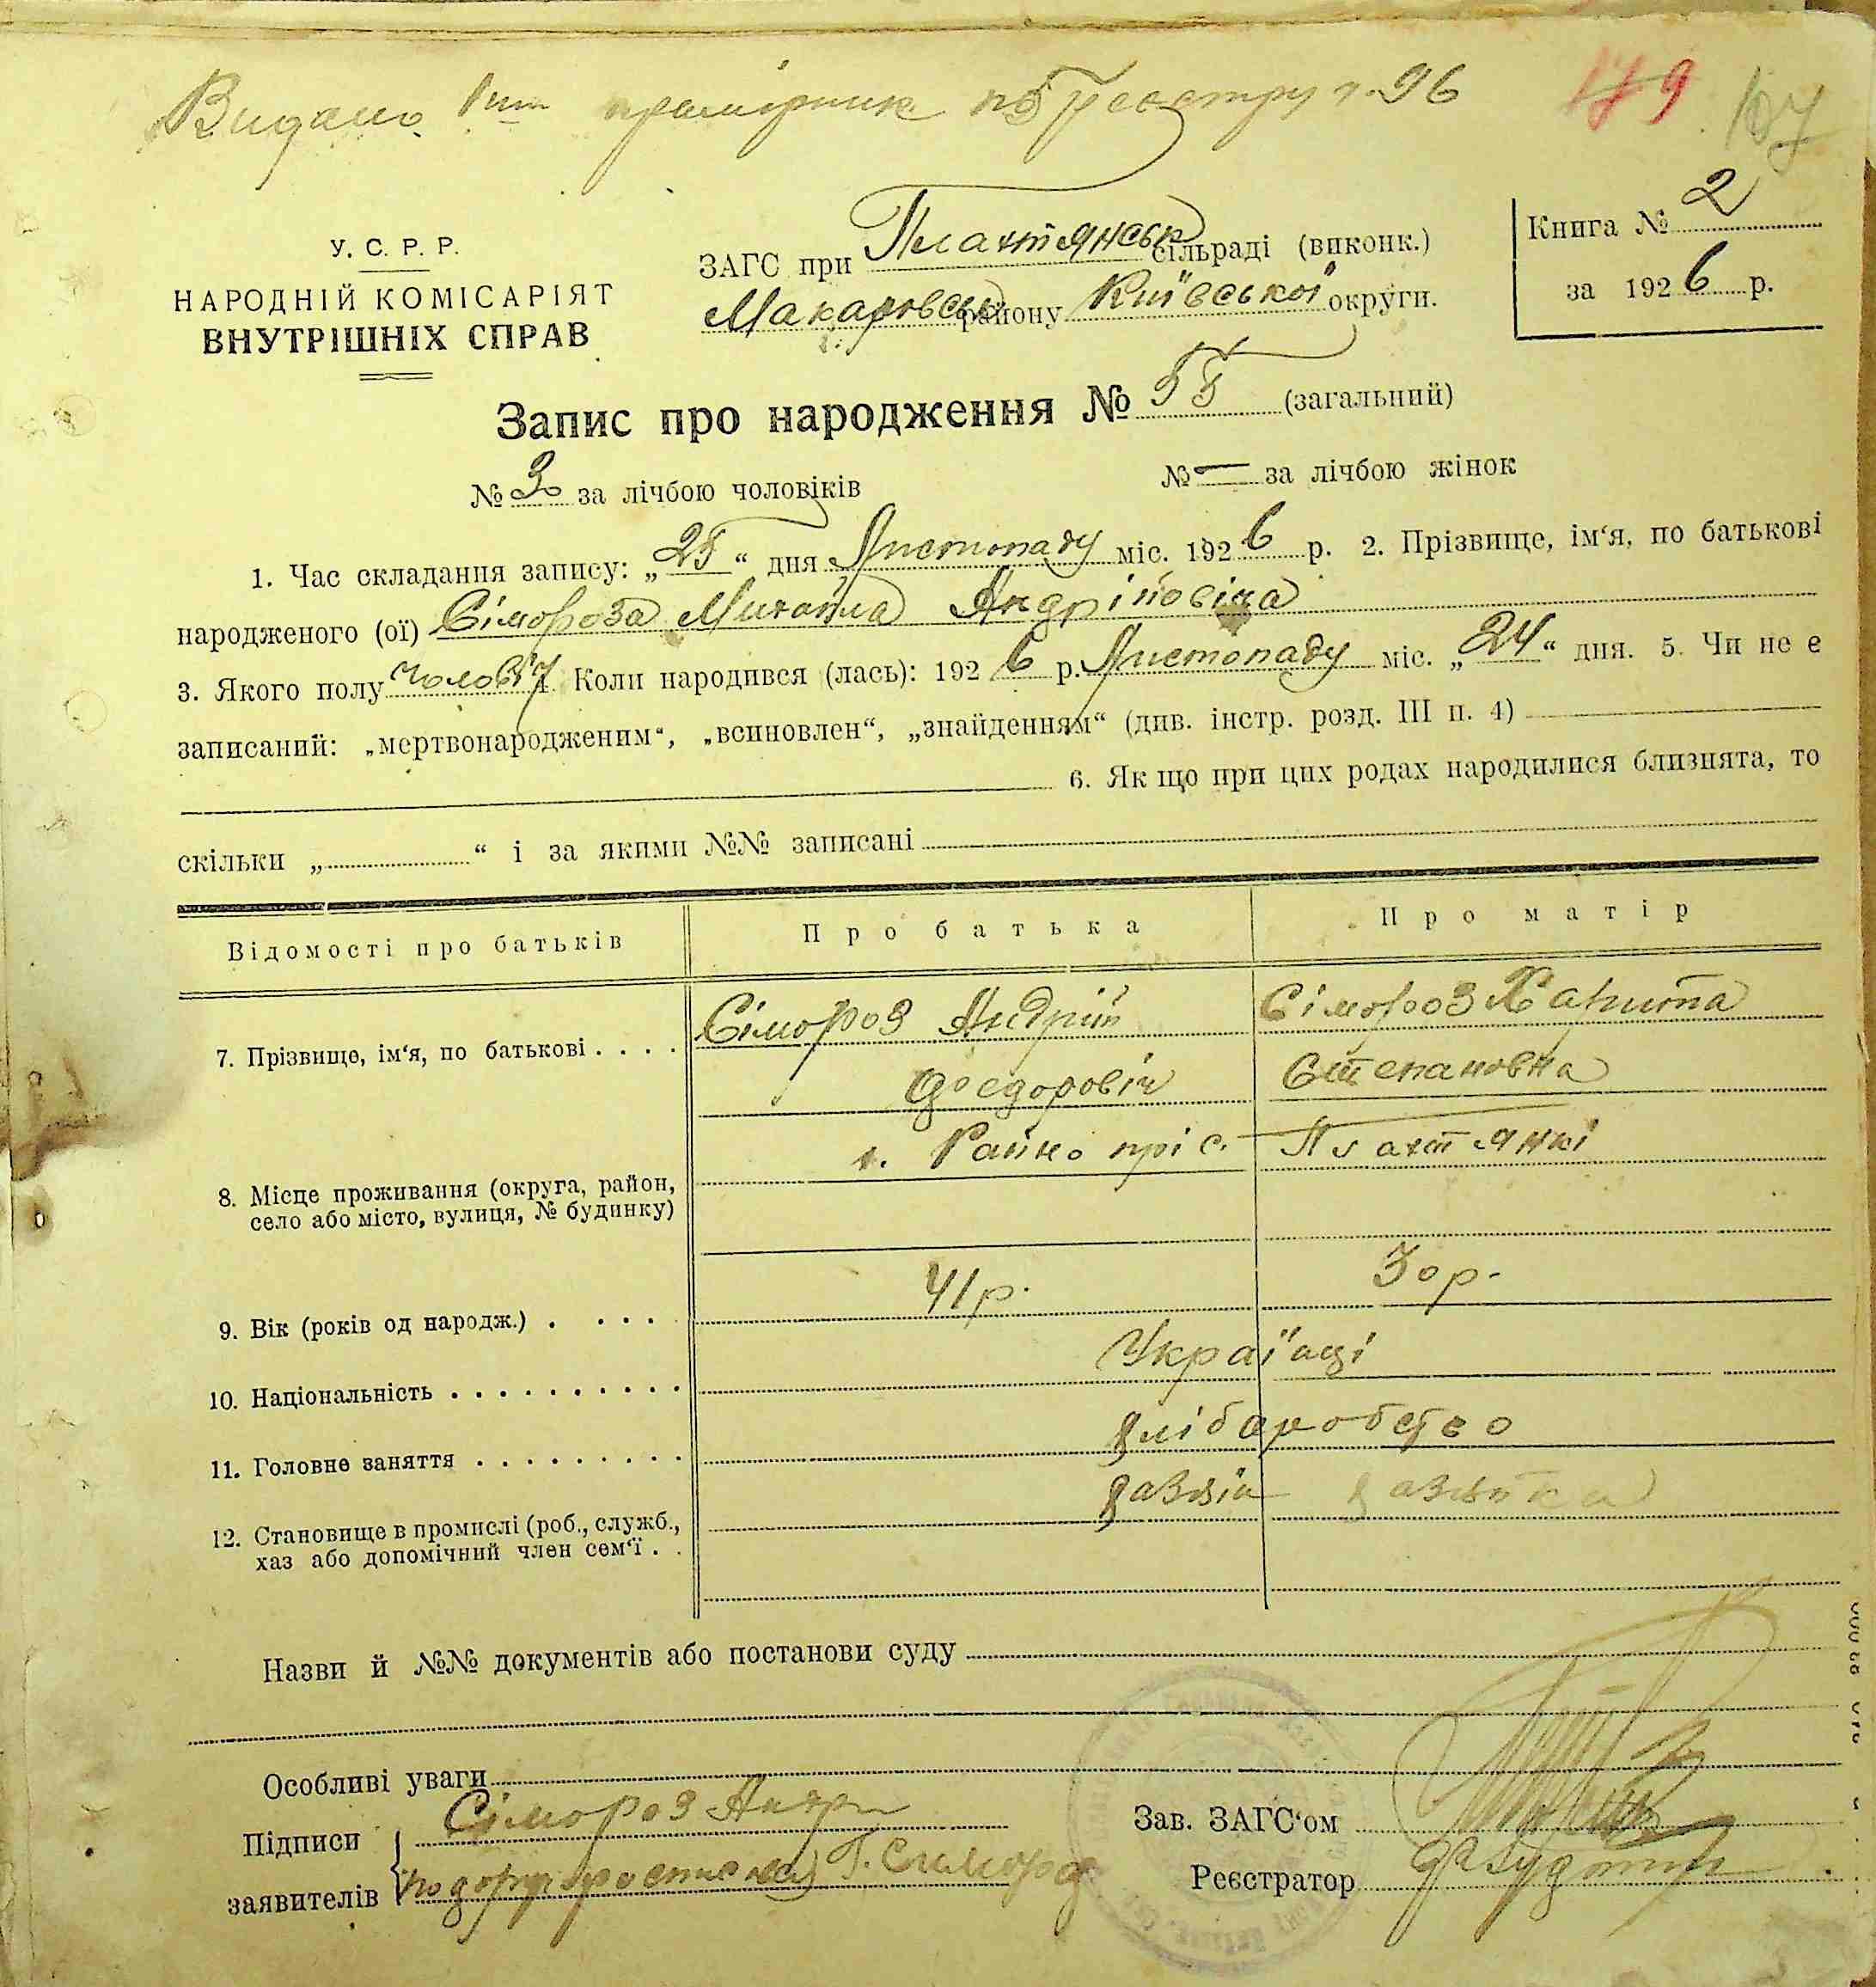 Видано 1 шт примірник по Реєстру ч. 96 179 107
У. С. Р. Р.
НАРОДНІЙ КОМІСАРІЯТ
ВНУТРІШНІХ СПРАВ
ЗАГС при Плахтянськ сільраді (виконк.)
Макаровськ району Київської округи.
Книга № 2
за 1926 р.
Запис про народження № 55 (загальний)
№ 3 за лічбою чоловіків № — за лічбою жінок
1. Час складання запису: „25“ дня Листопаду міс. 1926 р. 2. Прізвище, ім‘я, по батькові
народженого (ої) Сімороза Михайла Андрійовіча
3. Якого полу чоловіч 4. Коли народився (лась): 1926 р. Листопаду міс. „24“ дня. 5. Чи не є
записаний: „мертвонародженим“, „всиновлен“, „знайденням“ (див. інстр. розд. III п. 4)
6. Як що при цих родах народилися близнята, то
скільки „ “ і за якими №№ записані
Відомості про батьків Про батька Про матір
7. Прізвище, ім‘я, по батькові . . . . Сімороз Андрій Сімороз Харита
Феодоровіч Степановна
8. Місце проживання (округа, район, село або місто, вулиця, № будинку) х. Райно прі с. Плахтянкі
9. Вік (років од народж.) . . . . . 41 р. 30 р.
10. Національність . . . . . . . . . . Українці
11. Головне заняття . . . . . . . . . хліборобство
12. Становище в промислі (роб., служб., хаз або допомічний член сем‘ї . . хазяїн хазяйка
Назви й №№ документів або постанови суду
Особливі уваги
Підписи заявителів Сімороз Андри
Зав. ЗАГС‘ом
Реєстратор